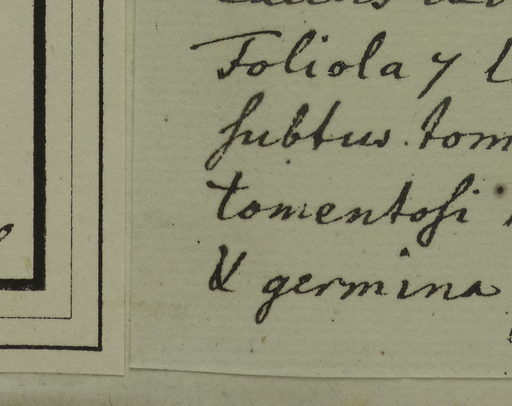 Foliola 7
subtus tom
tomentosi
& germina